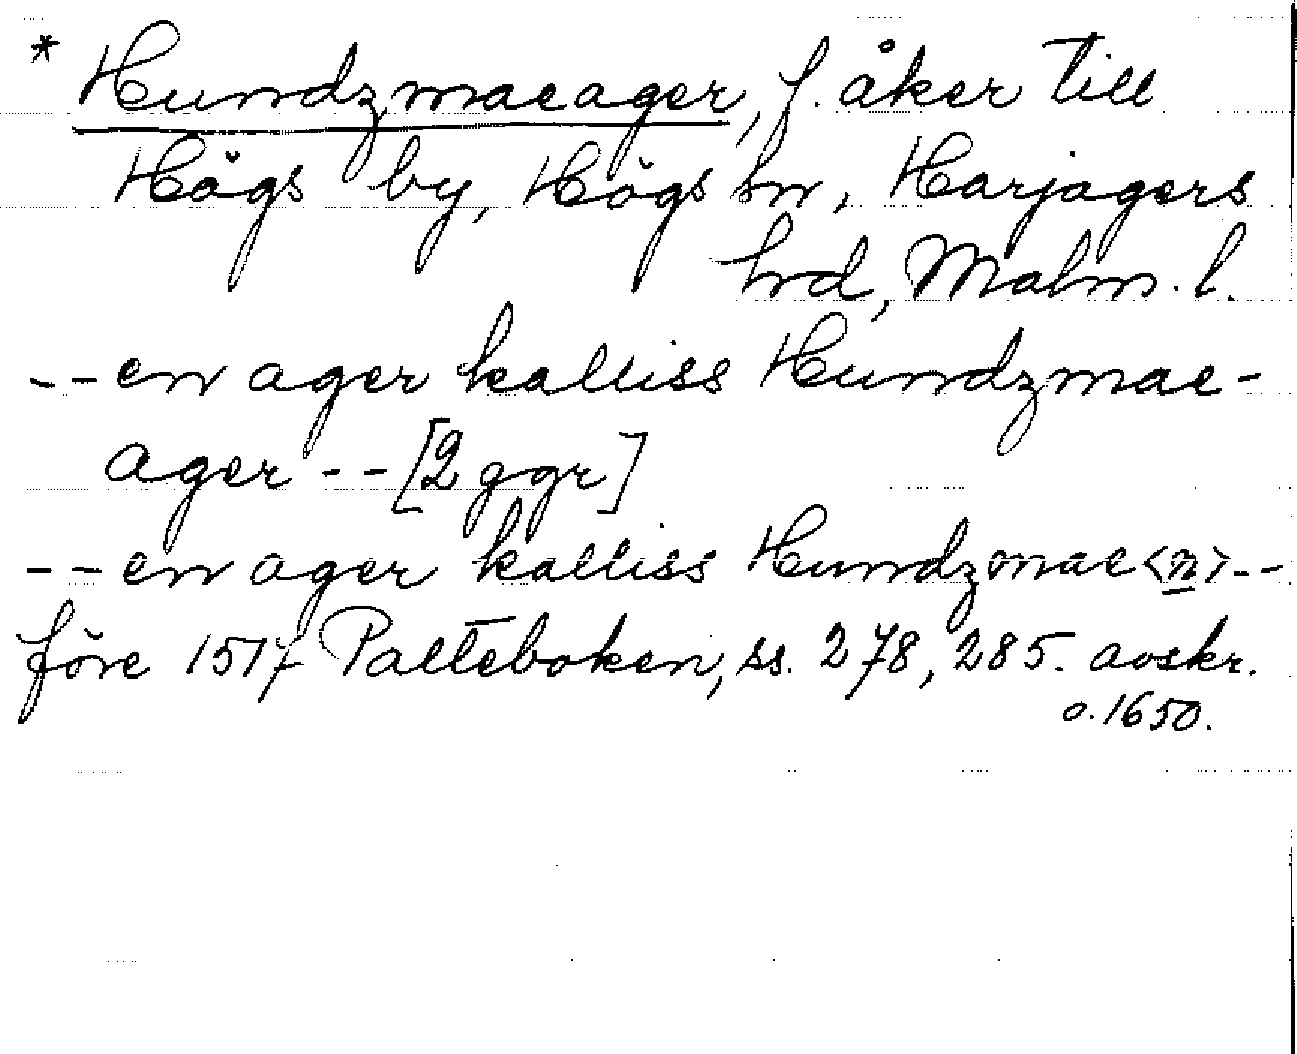 * Hundzmaeager, f. åker till
Högs by, Högs sn, Harjagers
hrd, Malm. l.
-- en ager kalliss Hundzmae-
ager -- [2 ggr]
-- en ager kalliss Hundzmae<n> --
före 1517 Palteboken, ss. 278, 285. avskr.
o. 1650.